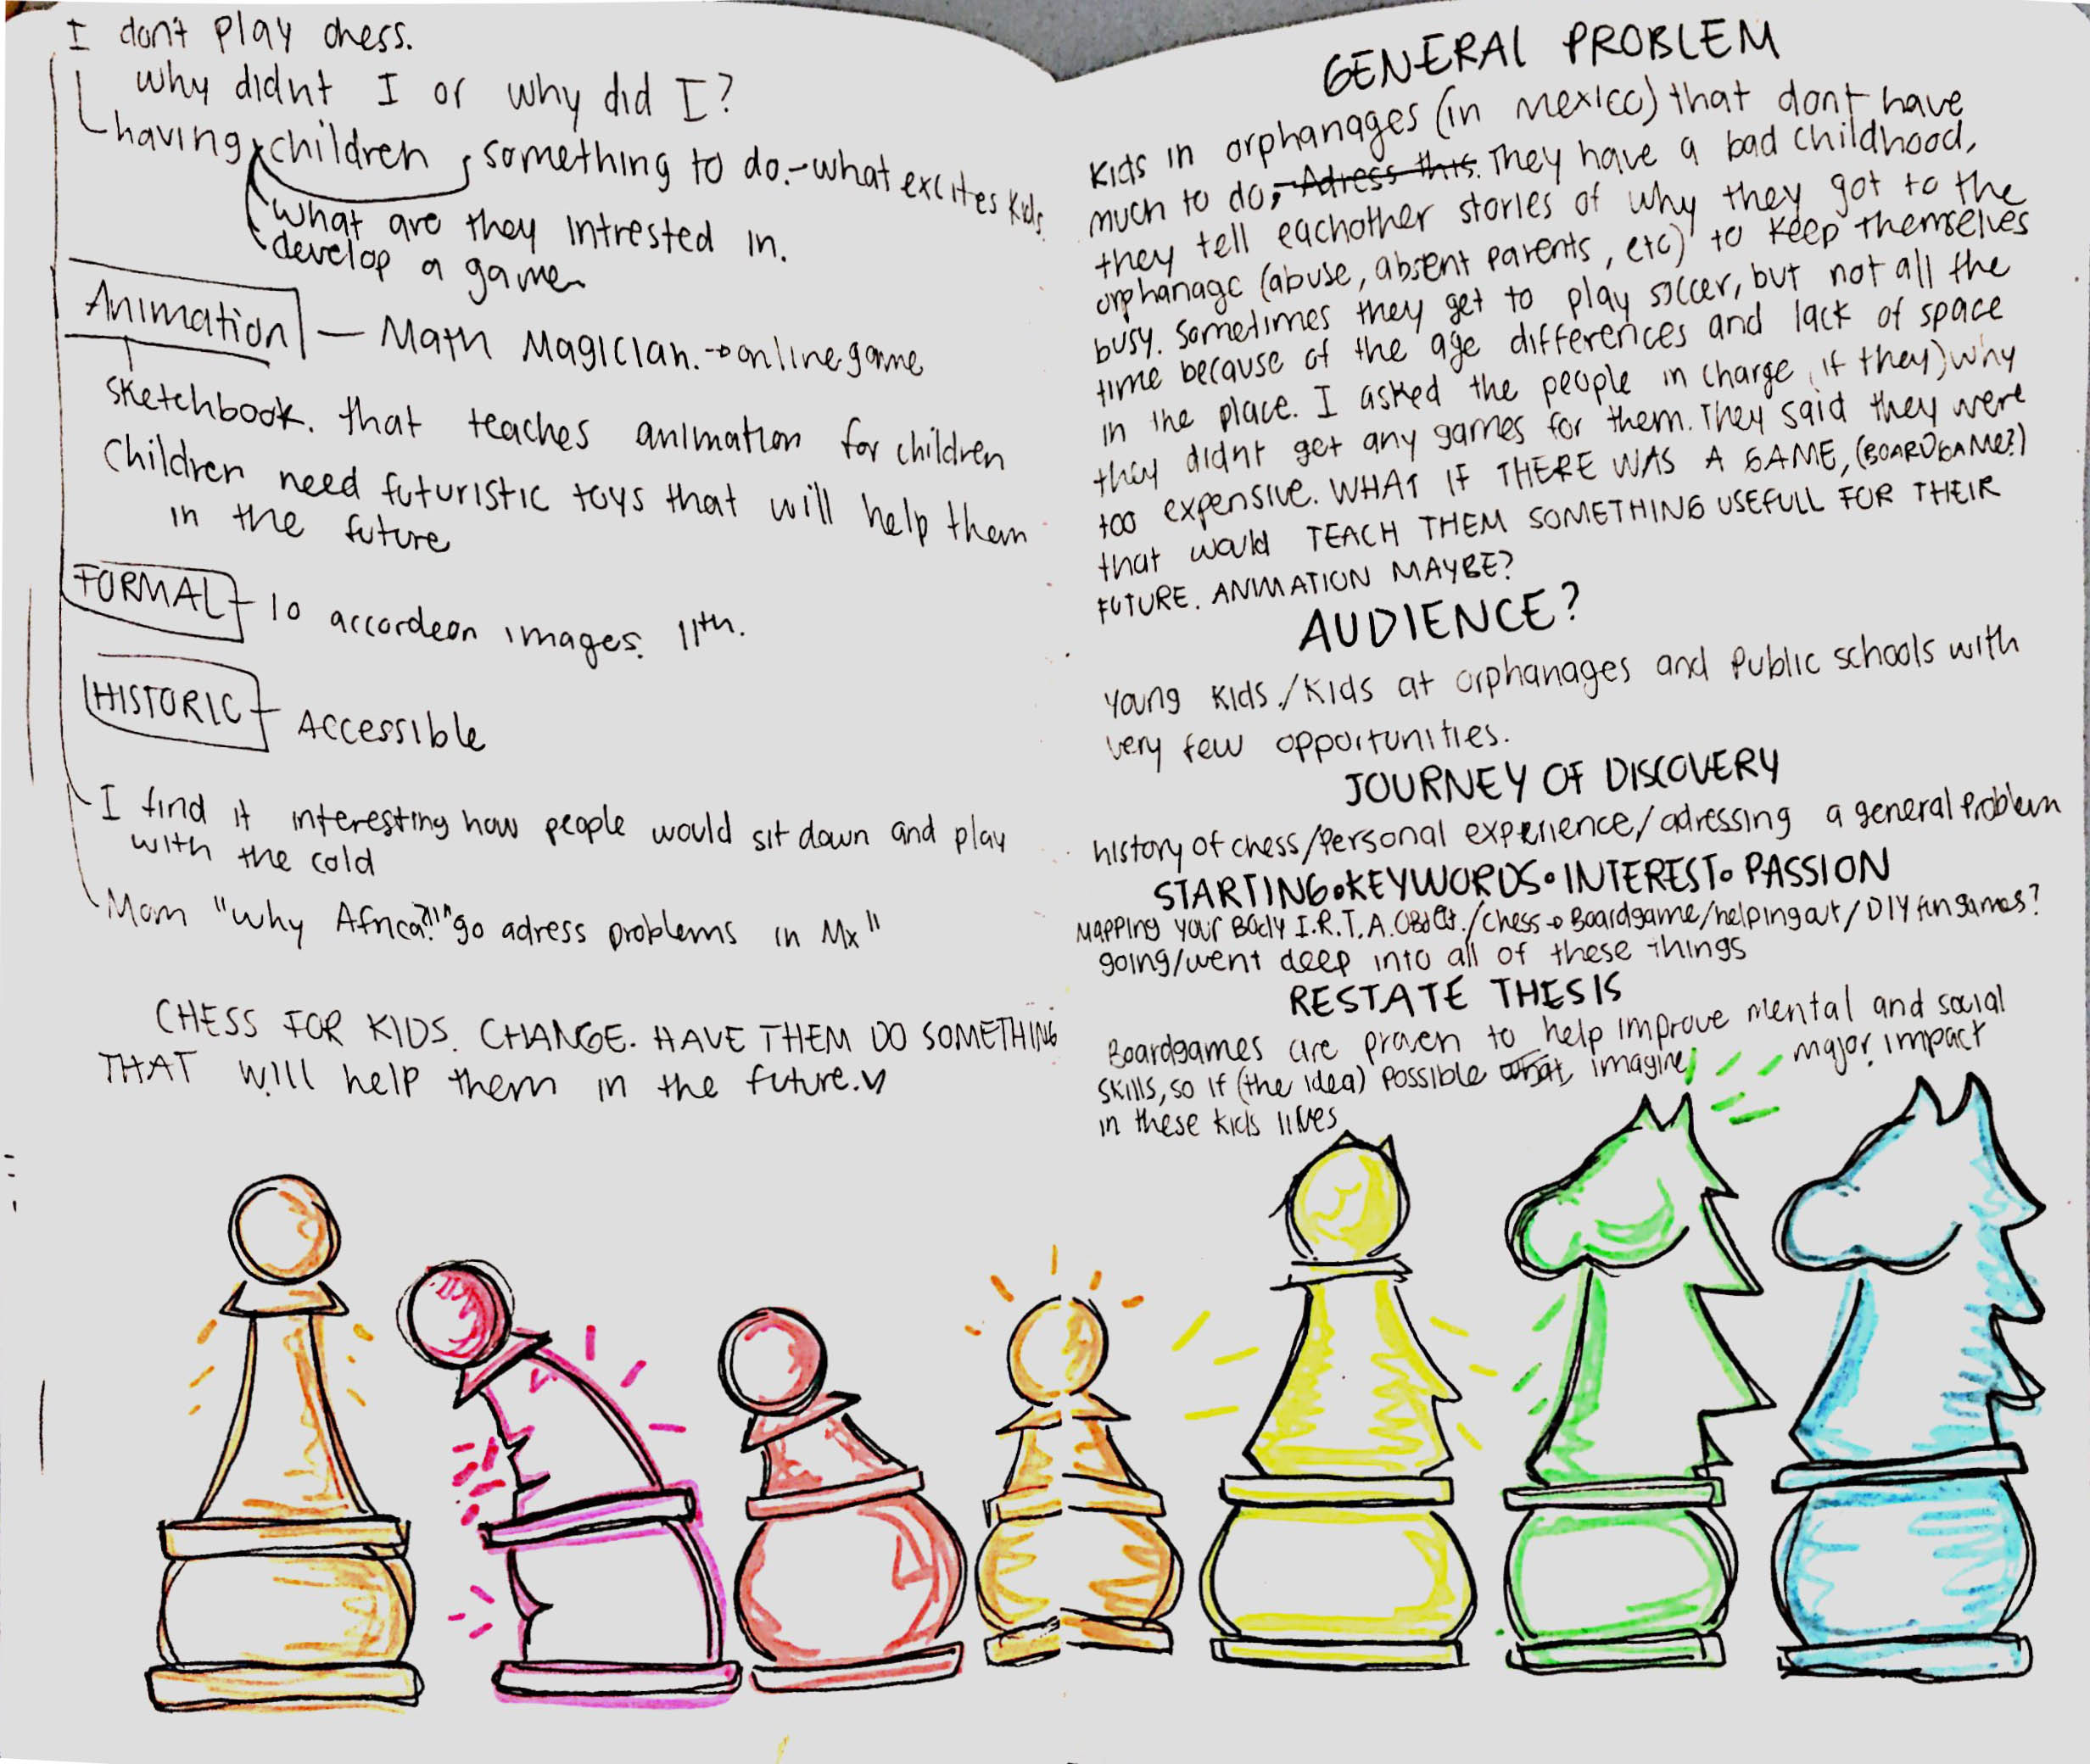 I dont play chess.
why didnt I or why did I?
having children, something to do.-what excites kids.
what are they intrested in.
develop a game
Animation — Math Magician. → online game
sketchbook. that teaches animation for children
Children need futuristic toys that will help them
in the future
FORMAL - 10 accordeon images. 11th.
HISTORIC - Accessible
I find it interesting how people would sit down and play
with the cold
Mom "why Africa?!!" "go adress problems in Mx"
CHESS FOR KIDS. CHANGE. HAVE THEM DO SOMETHING
THAT will help them in the future.
GENERAL PROBLEM
Kids in orphanages (in mexico) that dont have
much to do, Adress this. They have a bad childhood,
they tell eachother stories of why they got to the
orphanage (abuse, absent parents, etc) to keep themselves
busy. Sometimes they get to play soccer, but not all the
time because of the age differences and lack of space
in the place. I asked the people in charge, if they) why
they didnt get any games for them. They said they were
too expensive. WHAT IF THERE WAS A GAME, (BOARDGAME?)
that would TEACH THEM SOMETHING USEFULL FOR THEIR
FUTURE. ANIMATION MAYBE?
AUDIENCE?
Young kids./kids at orphanages and public schools with
very few opportunities.
JOURNEY OF DISCOVERY
history of chess/personal experience/adressing a general problem
STARTING•KEYWORDS•INTEREST•PASSION
MAPPING YOUR Body I.R.T.A. /chess → Boardgame/helping out/DIY fun games?
going/went deep into all of these things
RESTATE THESIS
Boardgames are proven to help improve mental and social
skills, so if (the idea) possible what, imagine major impact
in these kids lives